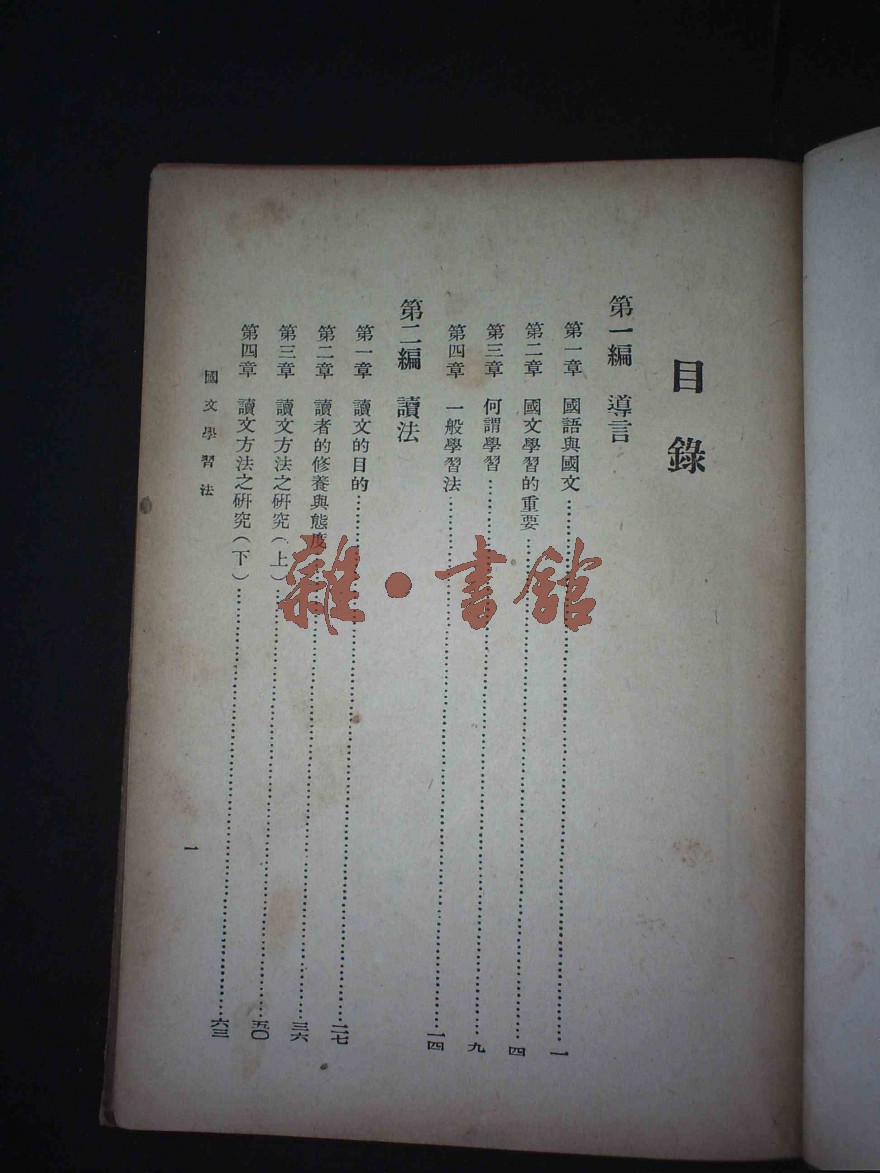 目錄
第一編 導言
第一章 國語與國文……一
第二章 國文學習的重要……四
第三章 何謂學習……九
第四章 一般學習法……一四
第二編 讀法
第一章 讀文的目的……二七
第二章 讀者的修養與態度……三六
第三章 讀文方法之研究(上)……五〇
第四章 讀文方法之研究(下)……六三
國文學習法
一
雜·書館